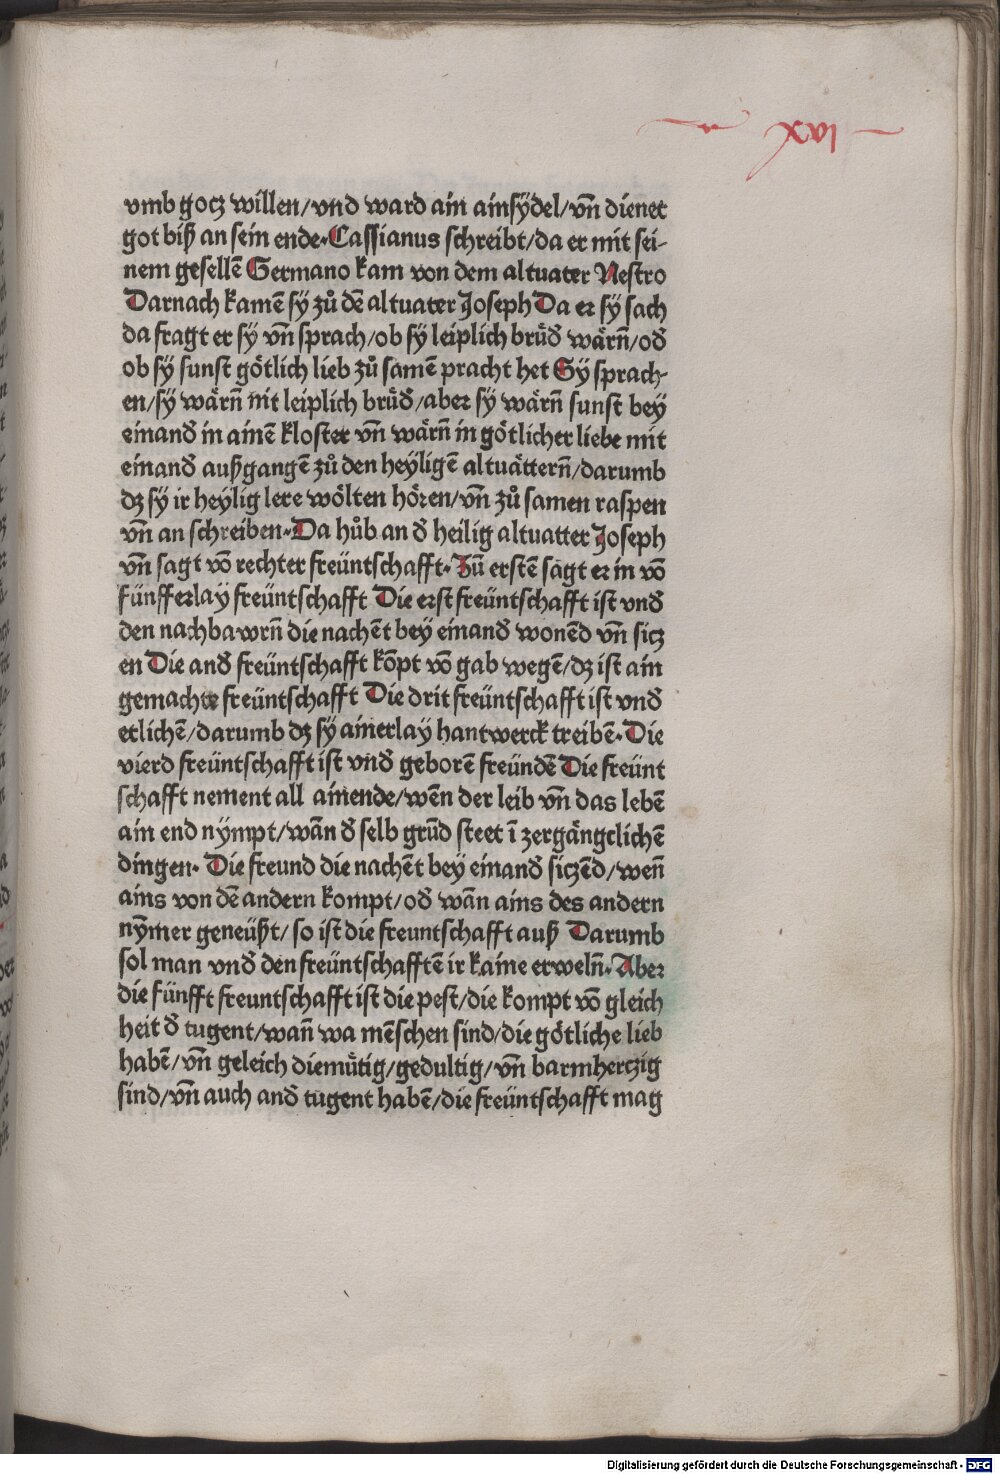 lxvi
vmb gocz willen/vnd ward ain ainsÿdel/vñ dienet
got biß an sein ende·Cassianus schreibt/da er mit sei-
nem gesellē Germano kam von dem altuater Nestro
Darnach kamē sÿ zů dē altuater Joseph Da er sÿ sach
da fragt er sÿ vñ sprach/ob sÿ leiplich brüđ wärñ/ođ
ob sÿ sunst götlich lieb zů samē pracht het Sÿ sprach-
en/sÿ wärñ nit leiplich brüđ/aber sÿ wärñ sunst bey
einanđ in ainē kloster vñ wärñ in götlicher liebe mit
einanđ außgangē zů den heÿligē altuätterñ/darumb
dz sÿ ir heÿlig lere wölten hören/vñ zů samen raspen
vñ an schreiben·Da hůb an đ heilig altuatter Joseph
vñ sagt vō rechter freüntschafft·Zū erstē sagt er in vō
fünfferlaÿ freüntschafft Die erst freüntschafft ist vnđ
den nachbawrñ die nachēt beÿ einanđ wonēd vñ sicz
en Die anđ freüntschafft kōpt vō gab wegē/dz ist ain
gemachte freüntschafft Die drit freüntschafft ist vnđ
etlichē/darumb dz sÿ ainerlay hantwerck treibē·Die
vierd freüntschafft ist vnđ geborē freündē Die freünt
schafft nement all ainende/wēn der leib vñ das lebē
ain end nÿmpt/wān đ selb grūd steet ī zergängclichē
dingen· Die freund die nachēt beÿ einanđ siczēd/weñ
ains von dē andern kompt/ođ wān ains des andern
nȳmer geneüßt/so ist die freuntschafft auß Darumb
sol man vnđ den freüntschafftē ir kaine erwelñ·Aber
die fünfft freuntschafft ist die pest/die kompt vō gleich
heit đ tugent/wañ wa mēschen sind/die götliche lieb
habē/vñ geleich diemütig/gedultig/vñ barmherczig
sind/vñ auch anđ tugent habē/die freüntschafft mag
Digitalisierung gefördert durch die Deutsche Forschungsgemeinschaft - DFG